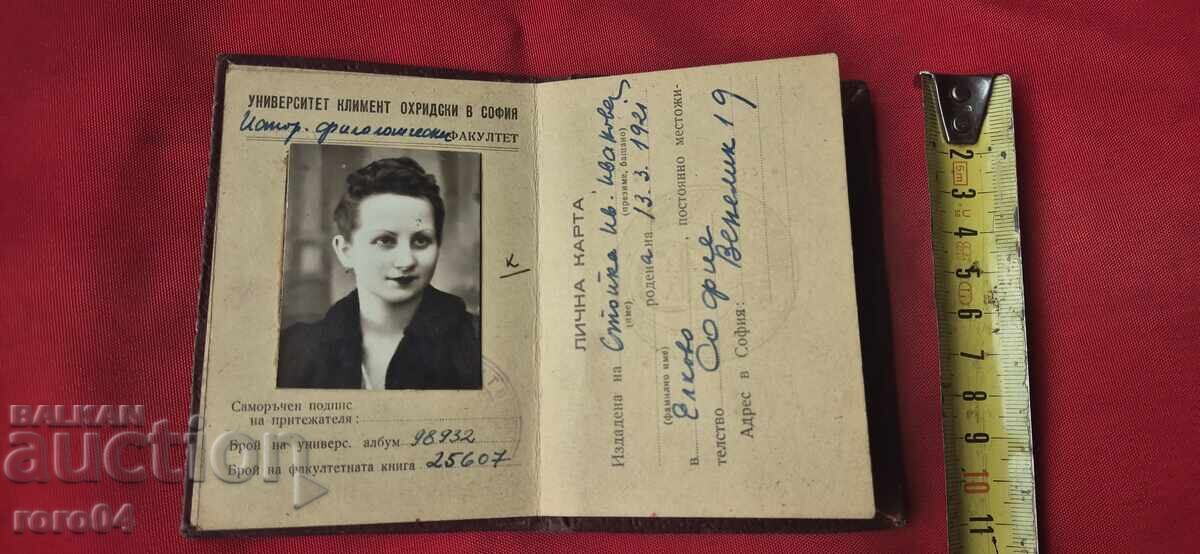 УНИВЕРСИТЕТ КЛИМЕНТ ОХРИДСКИ В СОФИЯ
Истор. филологически ФАКУЛТЕТ
к
Саморъчен подпис
на притежателя:
Брой на универс. албум 98932
Брой на факултетната книга 25607
ЛИЧНА КАРТА
Издадена на Стойка Ив. Иванова
(име) (презиме, бащино)
родена на 13.3.1921
(фамилно име)
в Елхово, постоянно местожи-
телство София
Адрес в София: Венелин 19
BALKAN
auction
roro04
2 3 4 5 6 7 8 9 10 11
5m